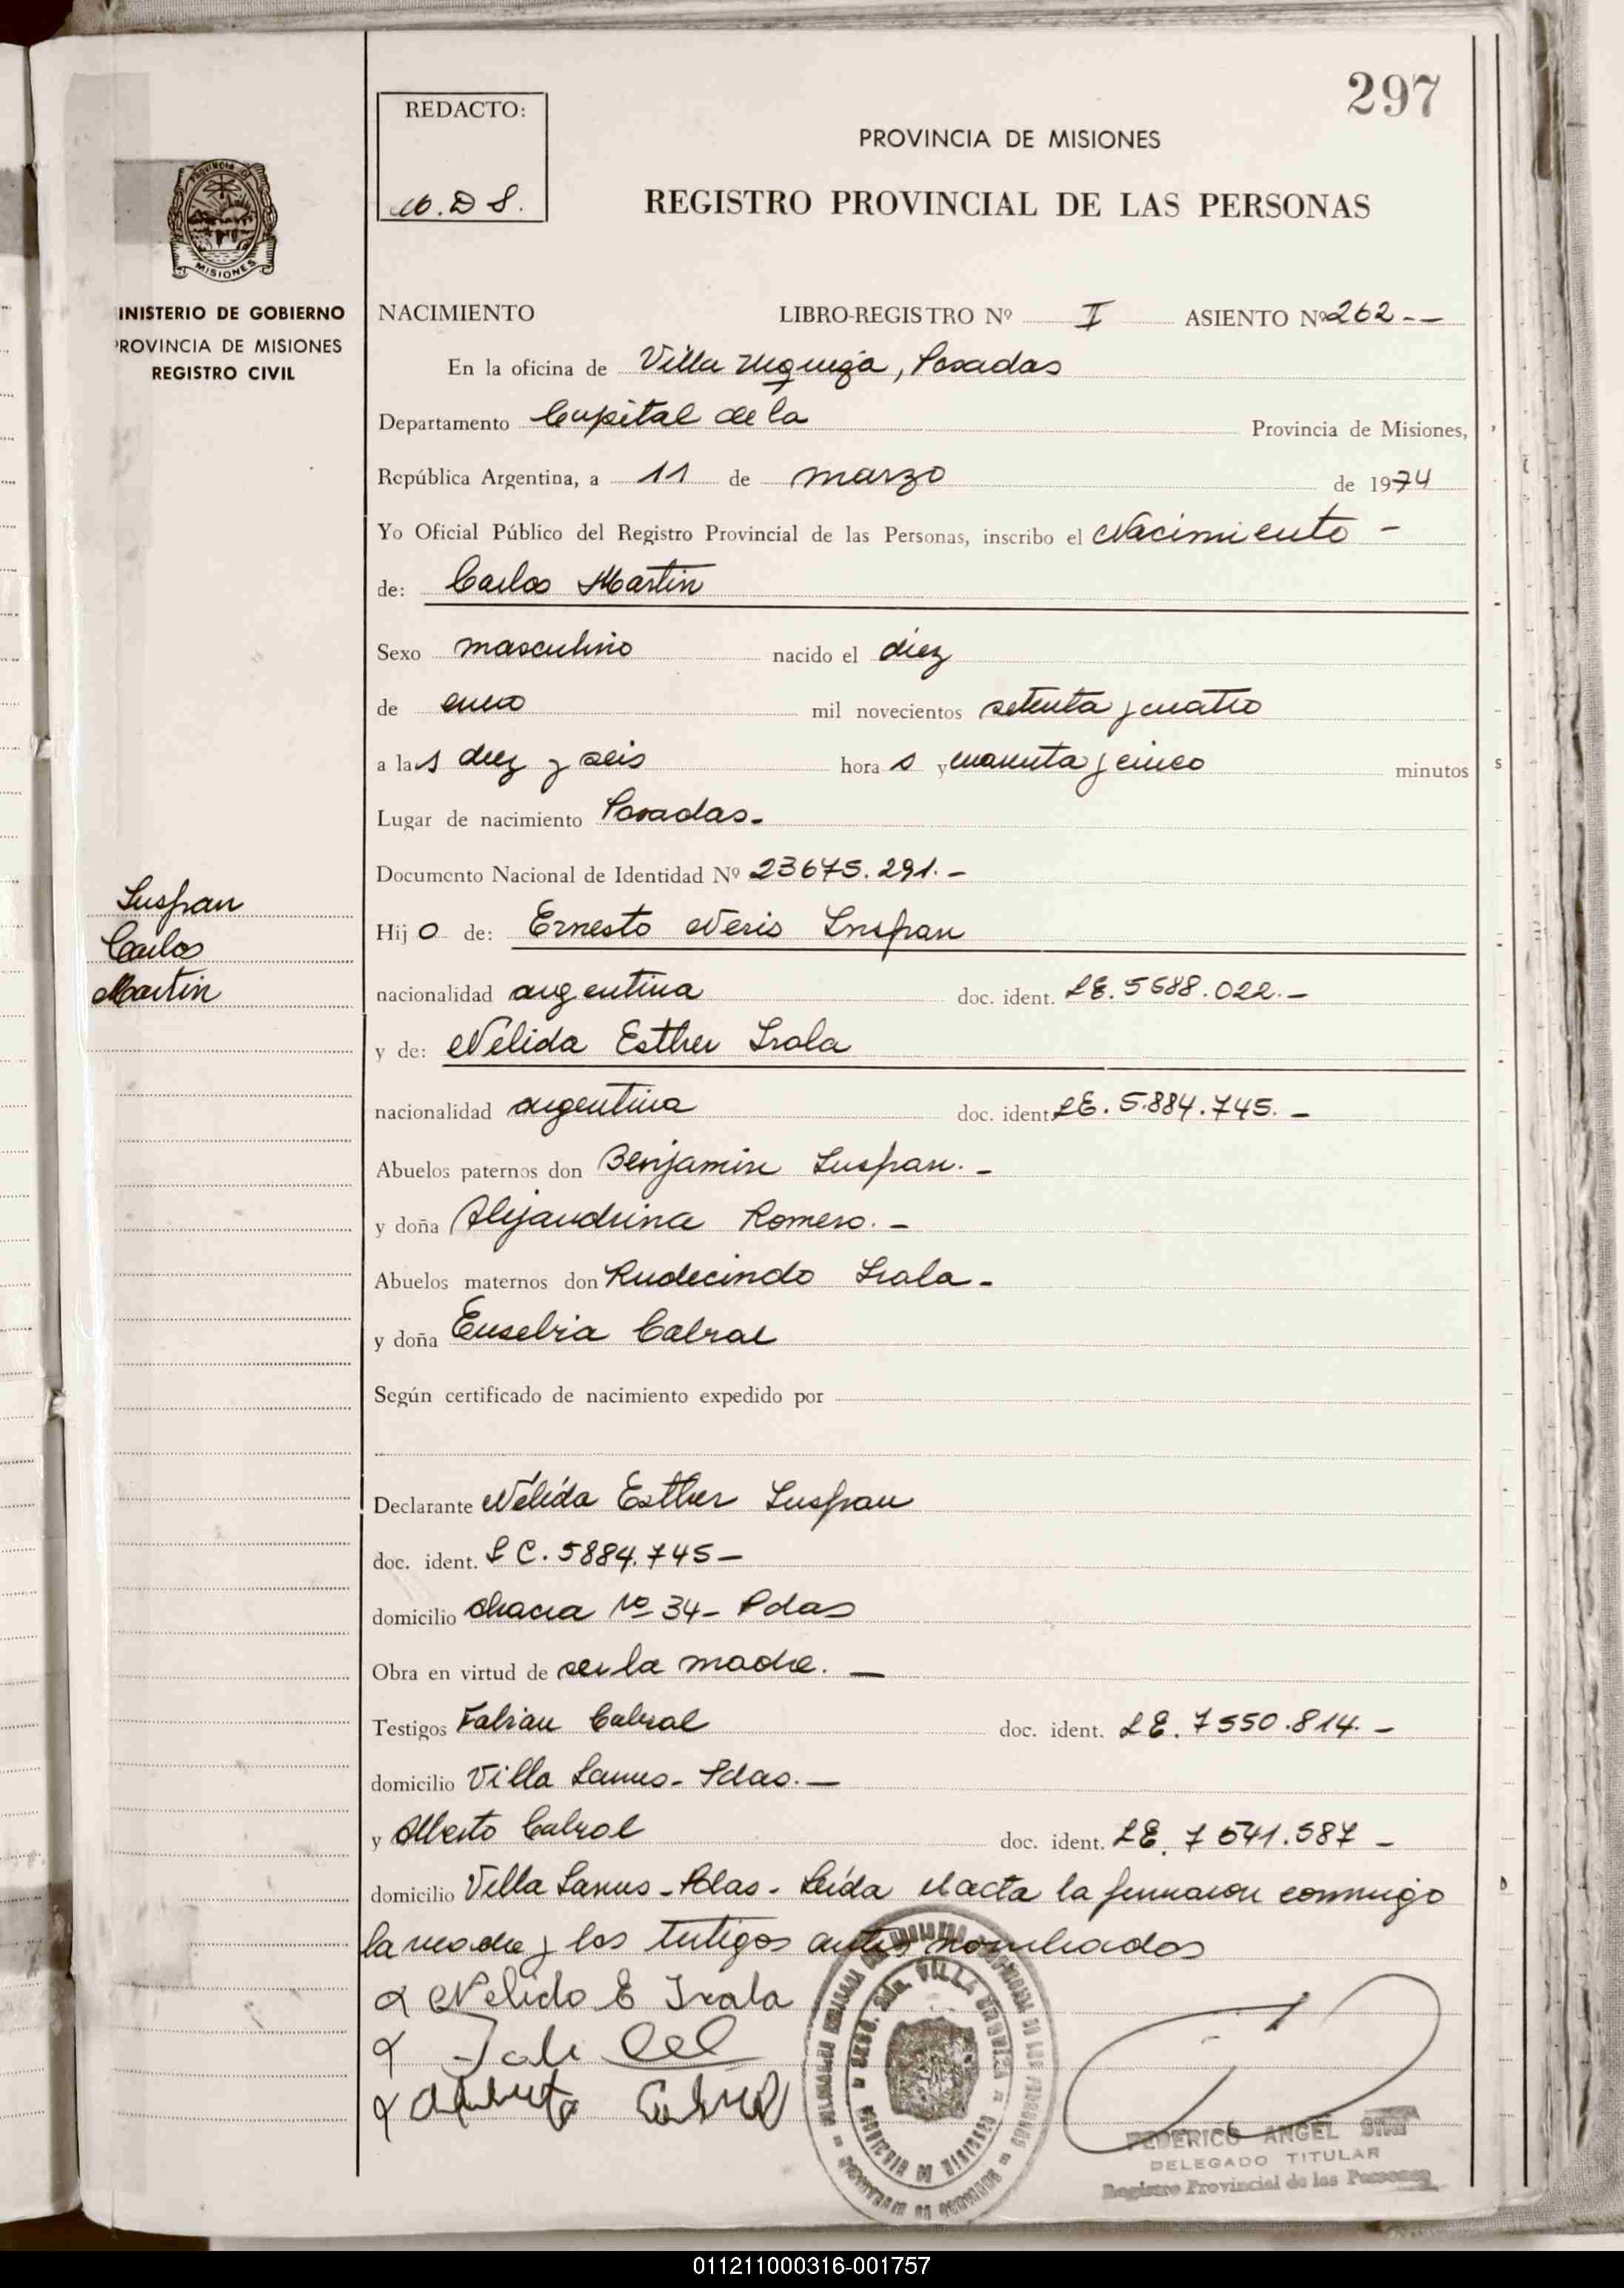 297
REDACTO:
M.D S.
PROVINCIA DE MISIONES
REGISTRO PROVINCIAL DE LAS PERSONAS
PROVINCIA DE
MISIONES
INISTERIO DE GOBIERNO
PROVINCIA DE MISIONES
REGISTRO CIVIL
NACIMIENTO LIBRO-REGISTRO Nº II ASIENTO Nº 262--
En la oficina de Villa Urquiza, Posadas
Departamento Capital de la Provincia de Misiones,
República Argentina, a 11 de marzo de 1974
Yo Oficial Público del Registro Provincial de las Personas, inscribo el Nacimiento -
de: Carlos Martin
Sexo masculino nacido el diez
de enero mil novecientos setenta y cuatro
a las diez y seis hora s y cuarenta y cinco minutos
Lugar de nacimiento Posadas.-
Documento Nacional de Identidad Nº 23675.291.-
Luspan
Carlos
Martin
Hij o de: Ernesto Neris Luspan
nacionalidad argentina doc. ident. LE. 5688.022.-
y de: Nélida Esther Irala
nacionalidad argentina doc. ident. LE. 5.884.745. -
Abuelos paternos don Benjamin Luspan. -
y doña Alejandrina Romero. -
Abuelos maternos don Rudecindo Irala -
y doña Eusebia Cabral
Según certificado de nacimiento expedido por
Declarante Nélida Esther Luspan
doc. ident. L C. 5884.745-
domicilio chacra Nº 34- Pdas
Obra en virtud de ser la madre. -
Testigos Fabian Cabral doc. ident. L E. 7550.814. -
domicilio Villa Lanus- Pdas. -
y Alberto Cabral doc. ident. LE. 7541.587 -
domicilio Villa Lanus - Pdas - Leída el acta la firmaron conmigo
la madre y los testigos antes nombrados
Nelida E Irala
Alberto Cabral
VILLA URQUIZA
FEDERICO ANGEL
DELEGADO TITULAR
Registro Provincial de las Personas
011211000316-001757